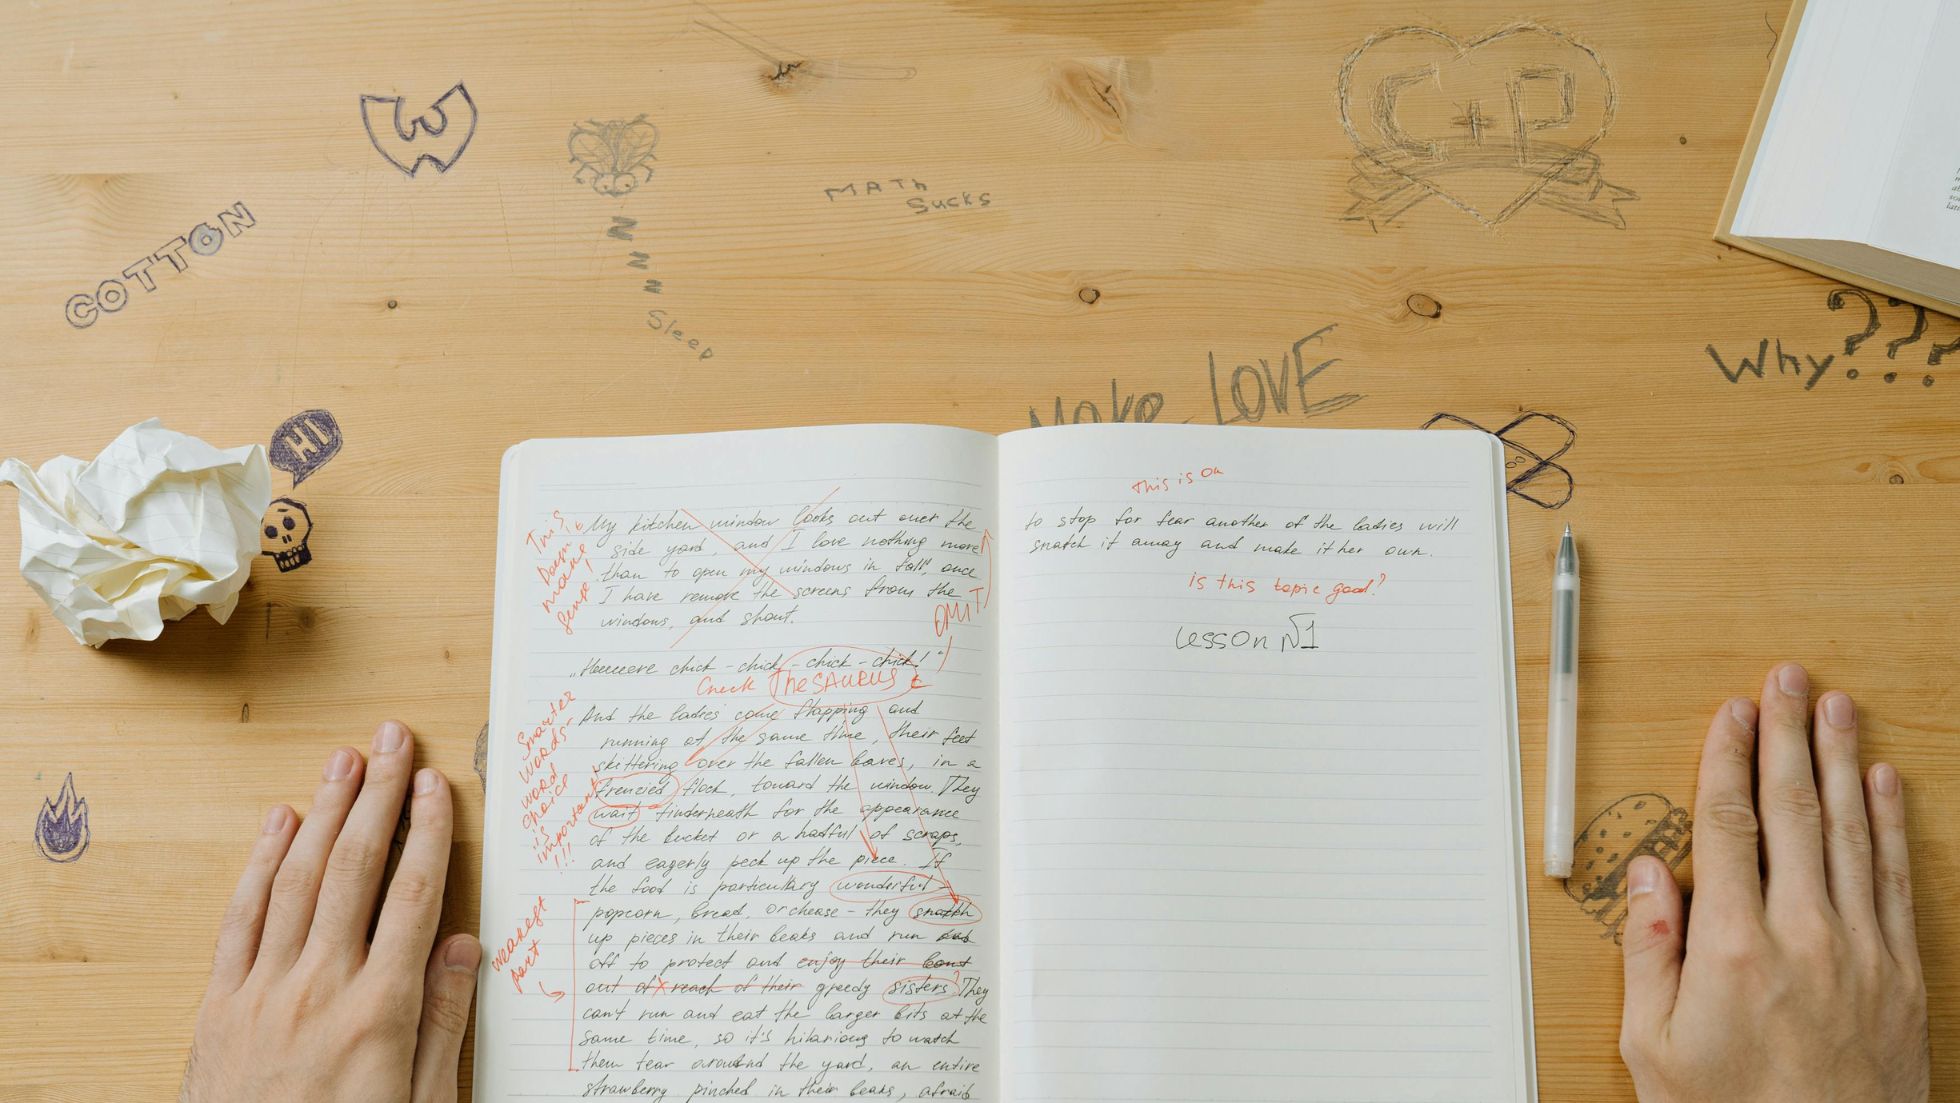 W
MATH
Sucks
C+P
COTTON
N
N
N
Z
Sleep
Make LOVE
Why???
HI
This
Doesn't
make
sense!
My kitchen window looks out over the
side yard, and I love nothing more
than to open my windows in fall, once
I have remove the screens from the
windows, and shout.
OMIT
chick - chick - chick - chick!"
Check THESAURUS
And the ladies come flapping and
running at the same time, their feet
skittering over the fallen leaves, in a
frenzied flock, toward the window. They
wait underneath for the appearance
of the bucket or a hatfull of scraps,
and eagerly peck up the piece. If
the food is particulary wonderful -
popcorn, bread, or chease - they snatch
up pieces in their beaks and run
off to protect and enjoy their
out of reach of their greedy sisters? They
can't run and eat the larger bits at the
same time, so it's hilarious to watch
them tear around the yard, an entire
strawberry pinched in their beaks, afraid
Smarter
words-
word
choice
is
important
!!!
weakest
part
This is on
to stop for fear another of the ladies will
snatch it away and make it her own.
is this topic good?
Lesson №1